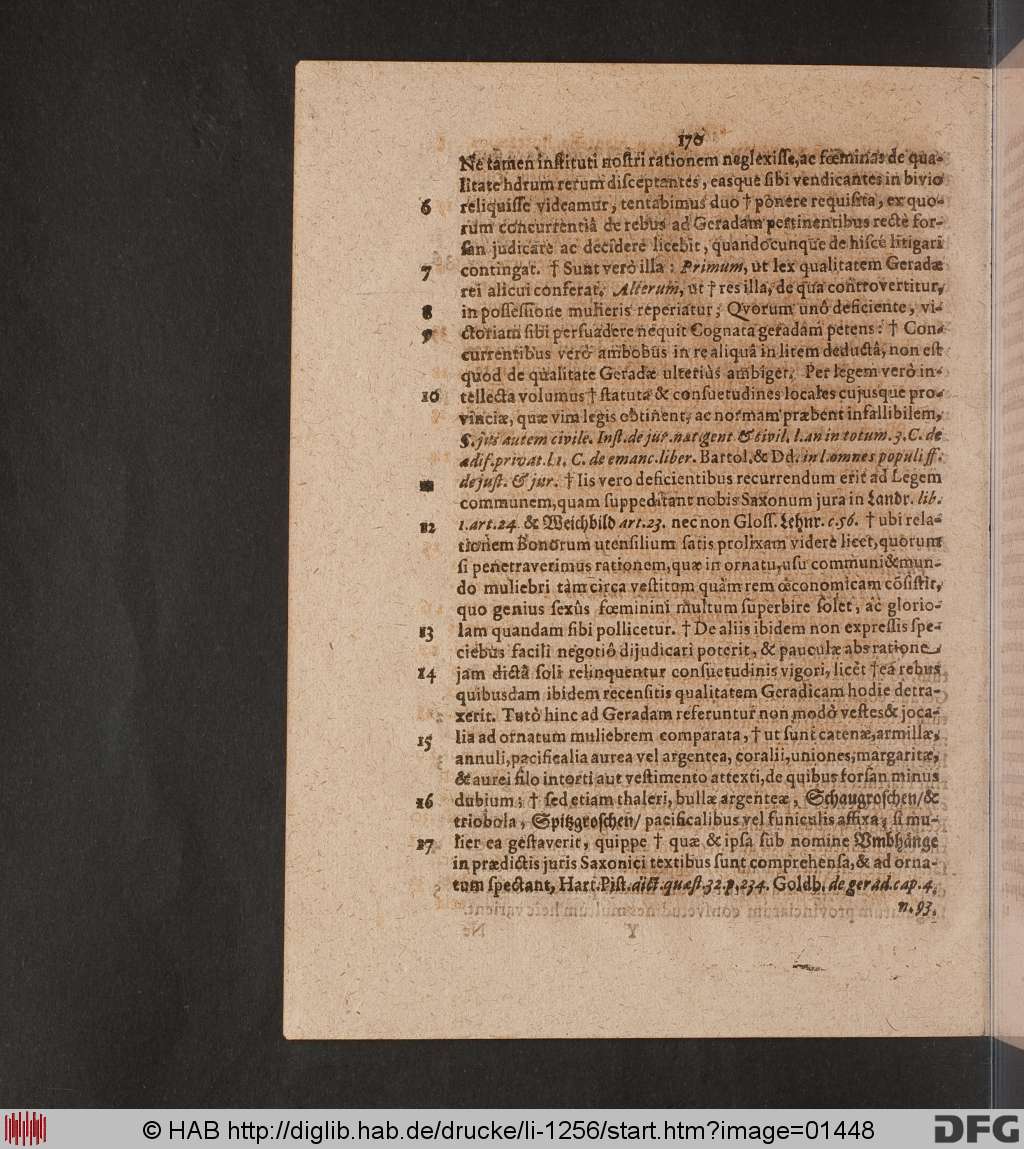 170
Ne tamen instituti nostri rationem neglexisse, ac fœminas de qua-
litate hdrum rerum disceptantes, easque sibi vendicantes in bivio
6 reliquisse videamur, tentabimus duo † ponere requisita, ex quo-
rum concurrentiâ de rebus ad Geradam pertinentibus rectè for-
san judicare ac decidere licebit, quandocunque de hisce litigari
7 contingat. † Sunt verò illa: Primum, ut lex qualitatem Geradæ
rei alicui conferat. Alterum, ut † res illa, de qua controvertitur,
8 in possessione mulieris reperiatur; Qvorum unô deficiente, vi-
9 ctoriam sibi persuadere nequit Cognata geradam petens: † Con-
currentibus verò ambobus in re aliquâ in litem deductâ, non est
quod de qualitate Geradæ ulteriùs ambiget. Per legem verò in-
10 tellecta volumus † statuta & consuetudines locales cujusque pro-
vinciæ, quæ vim legis obtinent, ac normam præbent infallibilem,
§. jus autem civile. Inst. de jur. nat. gent & civil. l. an in totum. 3. C. de
ædif. privat. l. 1. C. de emanc. liber. Bartol. & Dd. in l. omnes populi ff.
de just. & jur. † Iis vero deficientibus recurrendum erit ad Legem
communem, quam suppeditant nobis Saxonum jura in Landr. lib.
12 1. art. 24. & Weichbild art. 23. nec non Gloss. Lehnr. c. 56. † ubi rela-
tionem Bonorum utensilium satis prolixam viderè licet, quorum
si penetraverimus rationem, quæ in ornatu, usu communi & mun-
do muliebri tàm circa vestitum quàm rem œconomicam cõsistit,
quo genius sexûs fœminini multum superbire solet, ac glorio-
13 lam quandam sibi pollicetur. † De aliis ibidem non expressis spe-
ciebus facili negotiô dijudicari poterit, & pauculæ abs ratione
14 jam dictâ soli relinquentur consuetudinis vigori, licèt † ea rebus
quibusdam ibidem recensitis qualitatem Geradicam hodie detra-
xerit. Tutò hinc ad Geradam referuntur non modò vestes & joca-
15 lia ad ornatum muliebrem comparata, † ut sunt catenæ, armillæ,
annuli, pacificalia aurea vel argentea, coralii, uniones, margaritæ,
& aurei filo intorti aut vestimento attexti, de quibus forsan minus
16 dubium; † sed etiam thaleri, bullæ argenteæ, Schaugroschen/ &
triobola, Spitzgroschen/ pacificalibus vel funiculis affixa; si mu-
17 lier ea gestaverit, quippe † quæ & ipsa sub nomine Vmbhänge
in prædictis juris Saxonici textibus sunt comprehensa, & ad orna-
tum spectant, Hart. Pist. dict. quæst. 32. p. 234. Goldb. de gerad. cap. 4.
n. 93.
© HAB http://diglib.hab.de/drucke/li-1256/start.htm?image=01448
DFG